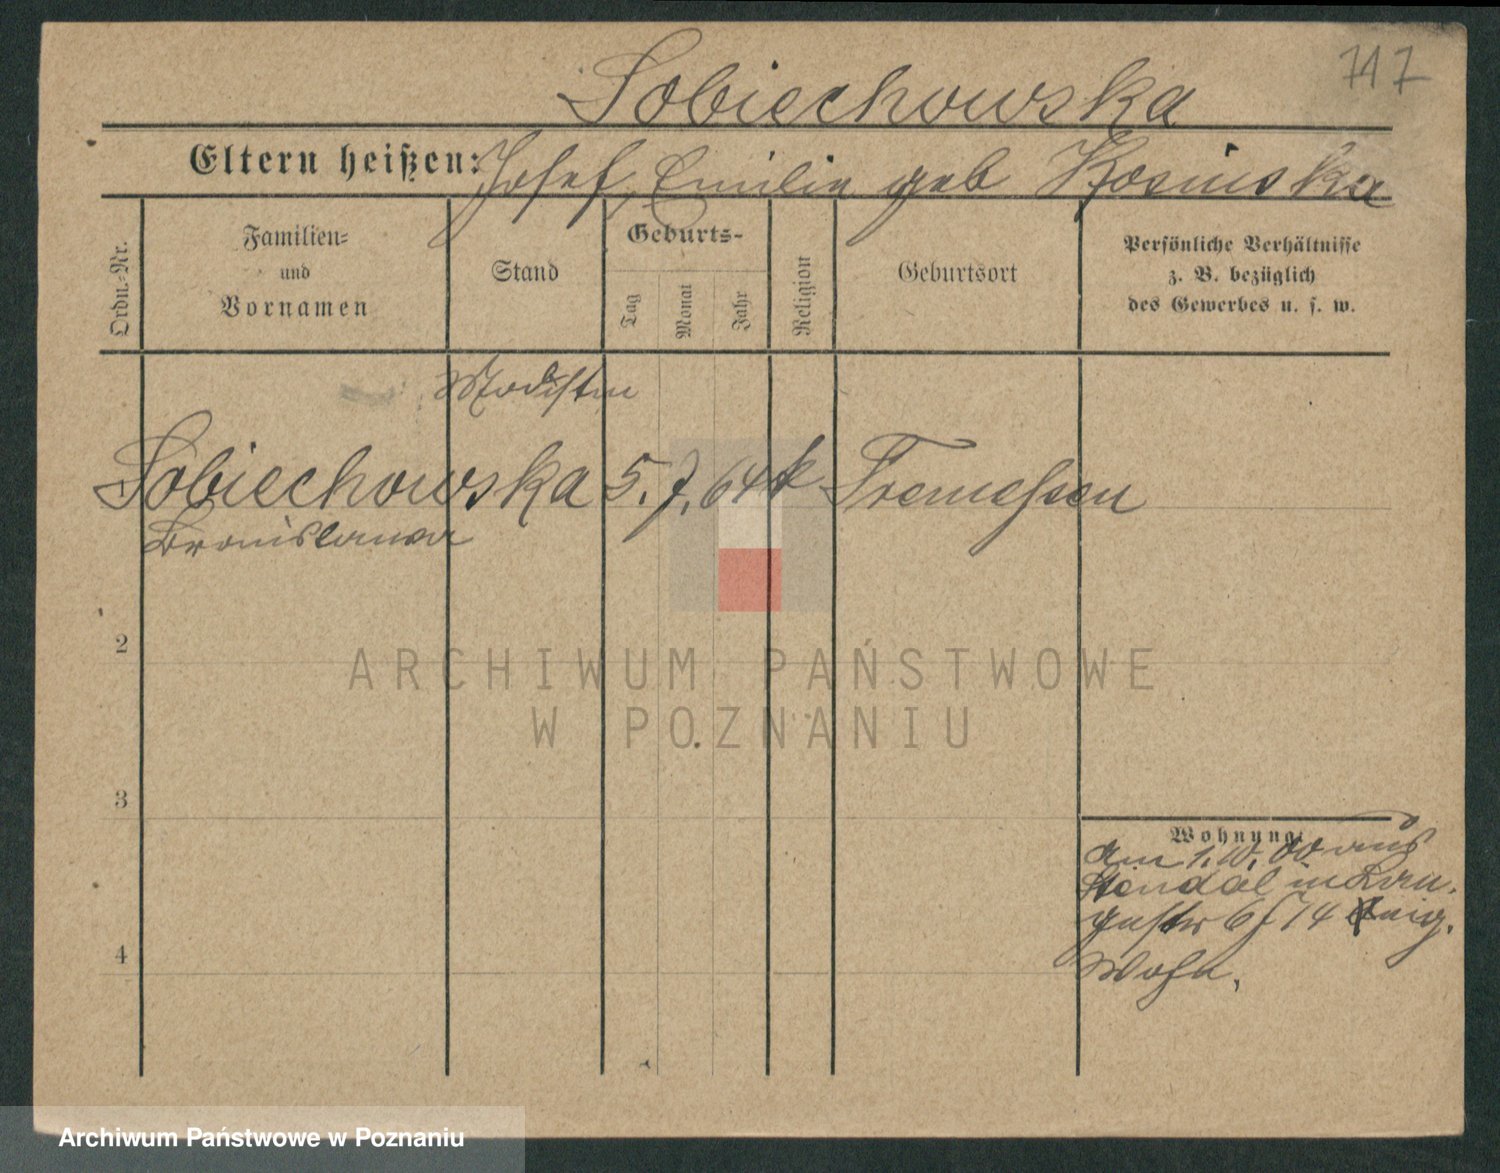 717
Sobiechowska
Eltern heißen: Josef, Emilie geb Kosinska
Ordn.-Nr.
Familien-
und
Vornamen
Stand
Geburts-
Tag
Monat
Jahr
Religion
Geburtsort
Persönliche Verhältnisse
z. B. bezüglich
des Gewerbes u. s. w.
Modistin
Sobiechowska 5. 7. 64 k Tremessen
Bronislawa
2
ARCHIWUM PAŃSTWOWE
W POZNANIU
3
Wohnung:
am 1. 10. 00 aus
Stendal in
14
Wohn.
4
Archiwum Państwowe w Poznaniu